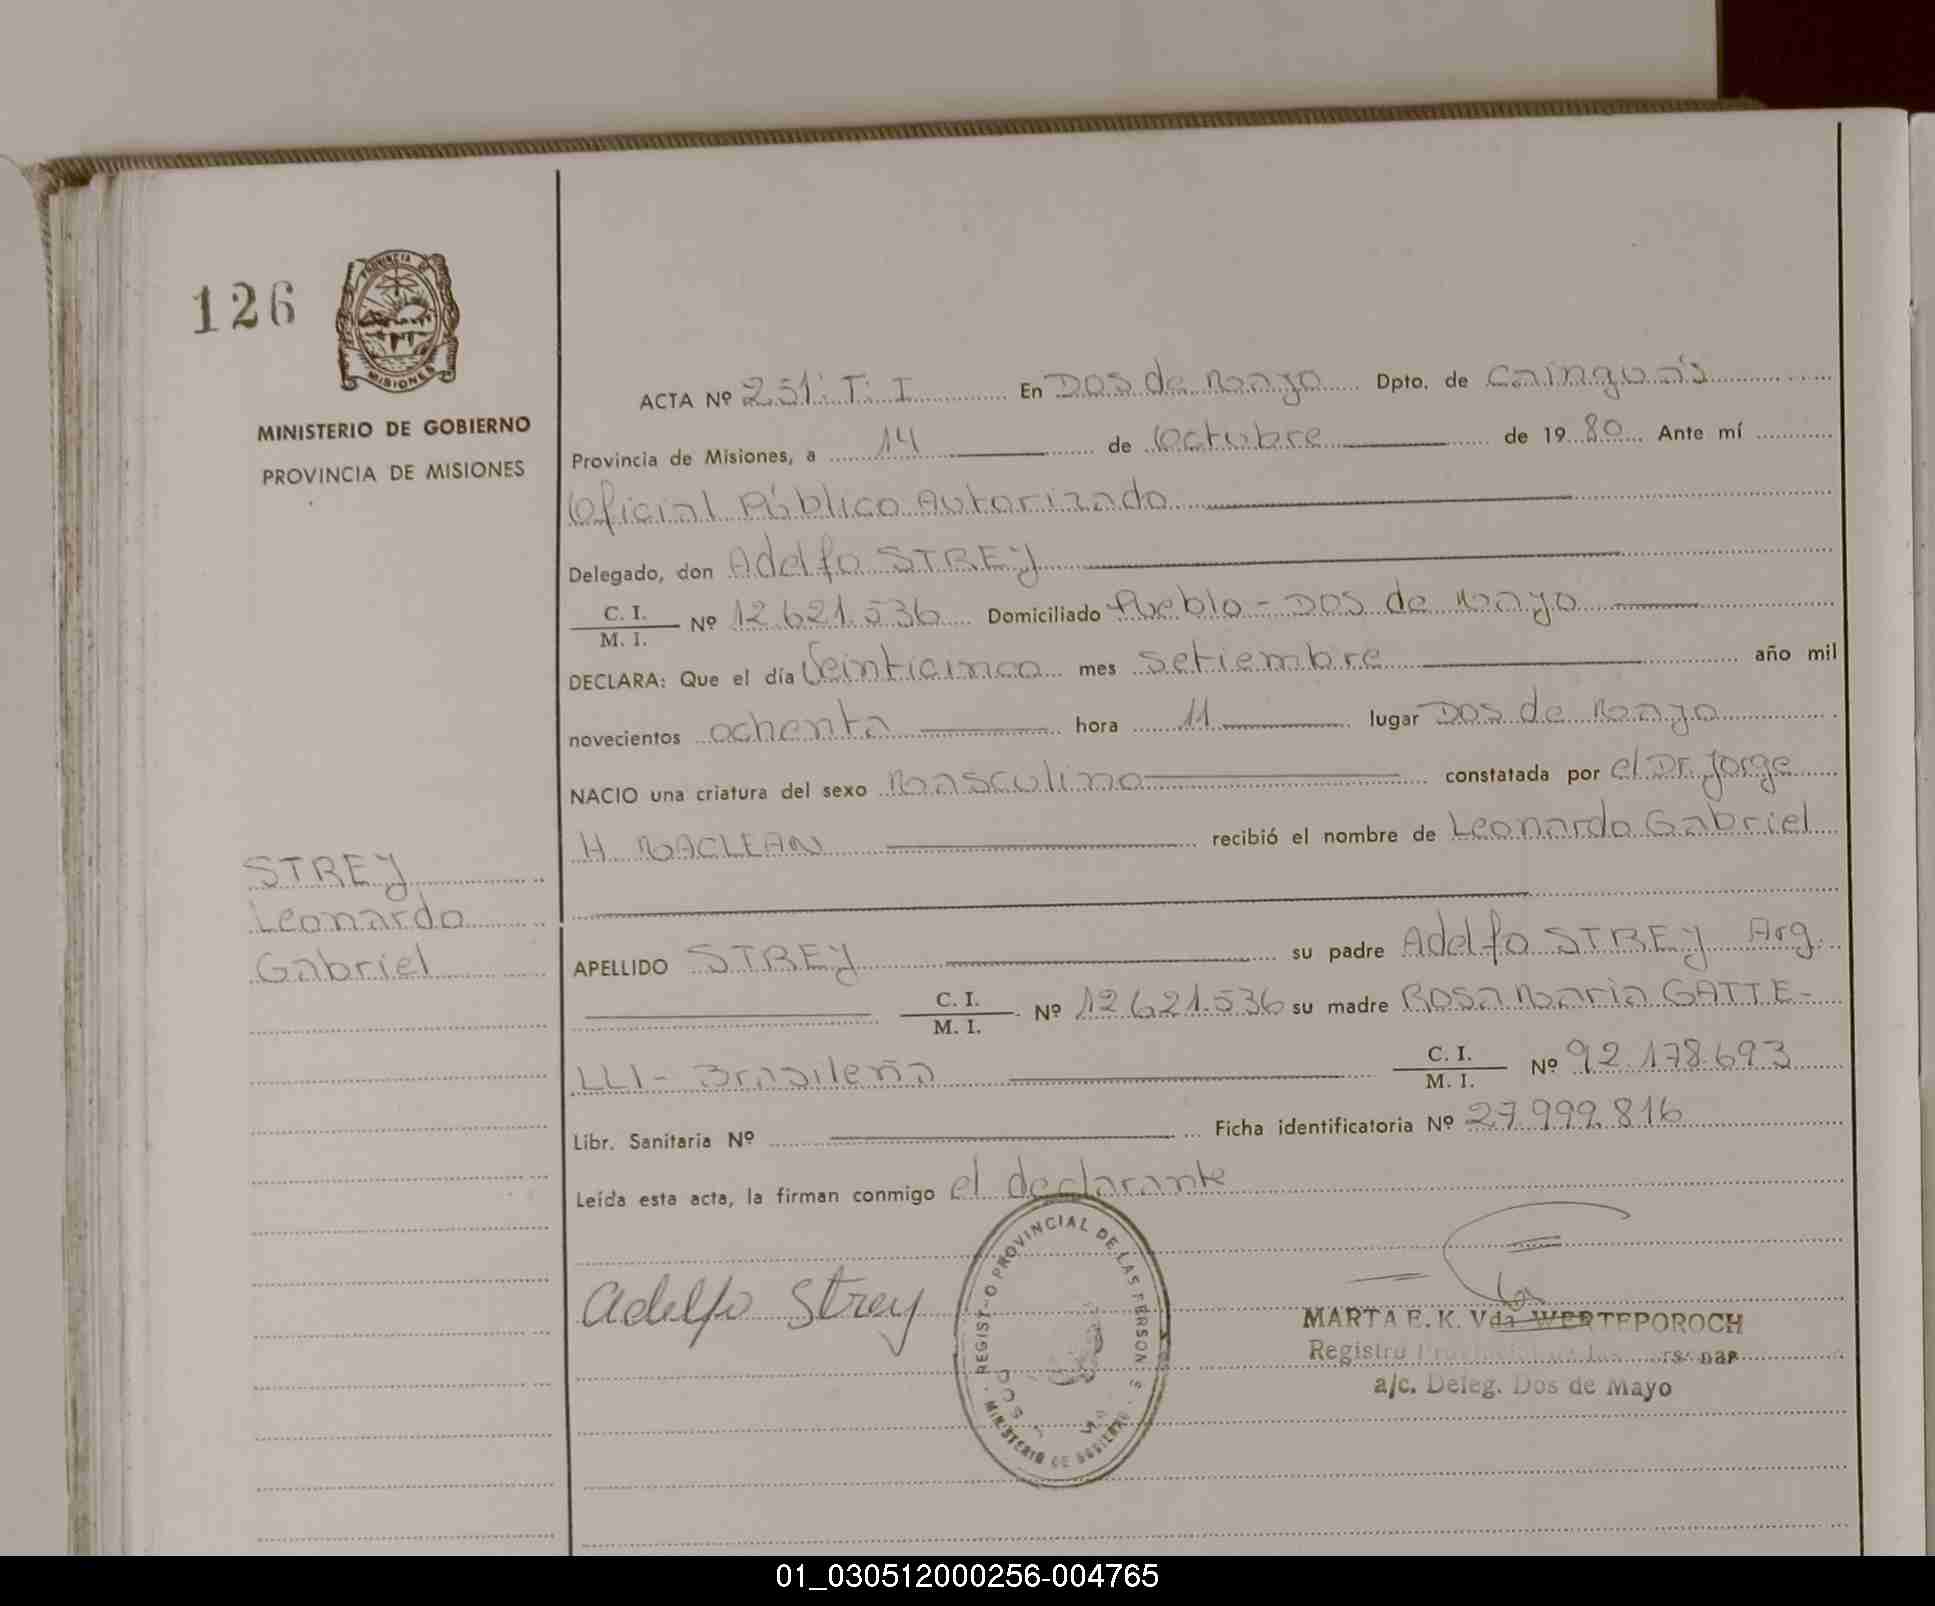 126
PROVINCIA DE
MISIONES
MINISTERIO DE GOBIERNO
PROVINCIA DE MISIONES
STREY
Leonardo
Gabriel
ACTA Nº 251: T: I En Dos de Mayo Dpto. de Cainguás
Provincia de Misiones, a 14 de Octubre de 1980 Ante mí
Oficial Público Autorizado
Delegado, don Adelfo STREY
C. I.
M. I. Nº 12.621.536 Domiciliado Pueblo - Dos de Mayo
DECLARA: Que el día Veinticinco mes setiembre año mil
novecientos ochenta hora 11 lugar Dos de Mayo
NACIO una criatura del sexo Masculino constatada por el Dr. Jorge
H. MACLEAN recibió el nombre de Leonardo Gabriel
APELLIDO STREY su padre Adelfo STREY Arg.
C. I.
M. I. Nº 12.621.536 su madre Rosa Maria GATTE-
LLI - Brasileña C. I.
M. I. Nº 92.178.693
Libr. Sanitaria Nº Ficha identificatoria Nº 27.999.816
Leída esta acta, la firman conmigo el declarante
Adelfo Strey
REGISTRO PROVINCIAL DE LAS PERSONAS
MINISTERIO DE GOBIERNO
MARTA E. K. Vda WERTEPOROCH
Registro
a/c. Deleg. Dos de Mayo
01_030512000256-004765